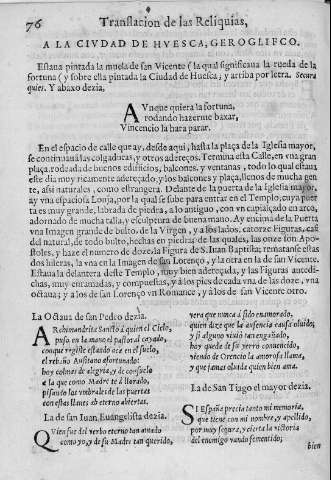 76 Translacion de las Reliquias,
A LA CIVDAD DE HVESCA, GEROGLIFCO.
Estaua pintada la muela de san Vicente (la qual significaua la rueda de la
fortuna (y sobre ella pintada la Ciudad de Huesca; y arriba por letra. Secura
quies. Y abaxo dezia.
AVnque quiera la fortuna,
rodando hazerme baxar,
Vincencio la hara parar.
En el espacio de calle que ay, desde aqui, hasta la plaça de la Iglesia mayor,
se continuauã las colgaduras, y otros adereços. Termina esta Calle, en vna gran
plaça, rodeada de buenos edificios, balcones, y ventanas, todo lo qual estaua
este dia muy ricamente adereçado, y los balcones y plaça, llenos de mucha gen
te, assi naturales, como estrangera. Delante de la puerta de la Iglesia mayor,
ay vna espaciosa Lonja, por la qual se sube para entrar en el Templo, cuya puer
ta es muy grande, labrada de piedra, a lo antiguo, con vn capialçado en arco,
adornado de mucha talla, y esculptura de buena mano. Ay encima de la Puerta
vna Imagen grande de bulto, de la Virgen, y a los lados, catorze Figuras, casi
del natural, de todo bulto, hechas en piedra; de las quales, las onze son Apo-
stoles, y haze el numero de doze, la Figura de S. Iuan Baptista; rematanse estas
dos hileras, la vna en la Imagen de san Lorenço, y la otra en la de san Vicente.
Estaua la delantera deste Templo, muy bien adereçada, y las Figuras antedi-
chas, muy enramadas, y compuestas, y a los pies de cada vna de las doze, vna
octaua; y a los de san Lorenço vn Romance, y a los de san Vicente otro.
La Octaua de san Pedro dezia.
ARchimandrita Sancto â quien el Cielo,
puso en la mano el pastoral cayado,
conque registe estando aca en el suelo,
el rebaño
hoy colmas de alegria, y de consuelo
a la que como Madre te â llorado,
pisando los vmbrales de las puertas
con estas llaues ab eterno abiertas.
La de san Iuan, Euangelista dezia.
QVien fue del verbo eterno tan amado
como yo, y de su Madre tan querido,
vera que nunca â sido enamorado,
quien dize que la ausencia causa oluido;
y si alguno viuio tan engañado,
hoy quede de su yerro conuencido,
viendo de Orencio la amorosa llama,
y que jamas oluida quien bien ama.
La de san Tiago el mayor dezia.
SI España precia tanto mi memoria,
que tiene con mi nombre, y apellido,
por muy segura, y cierta la victoria
del enemigo vando fementido;
bien